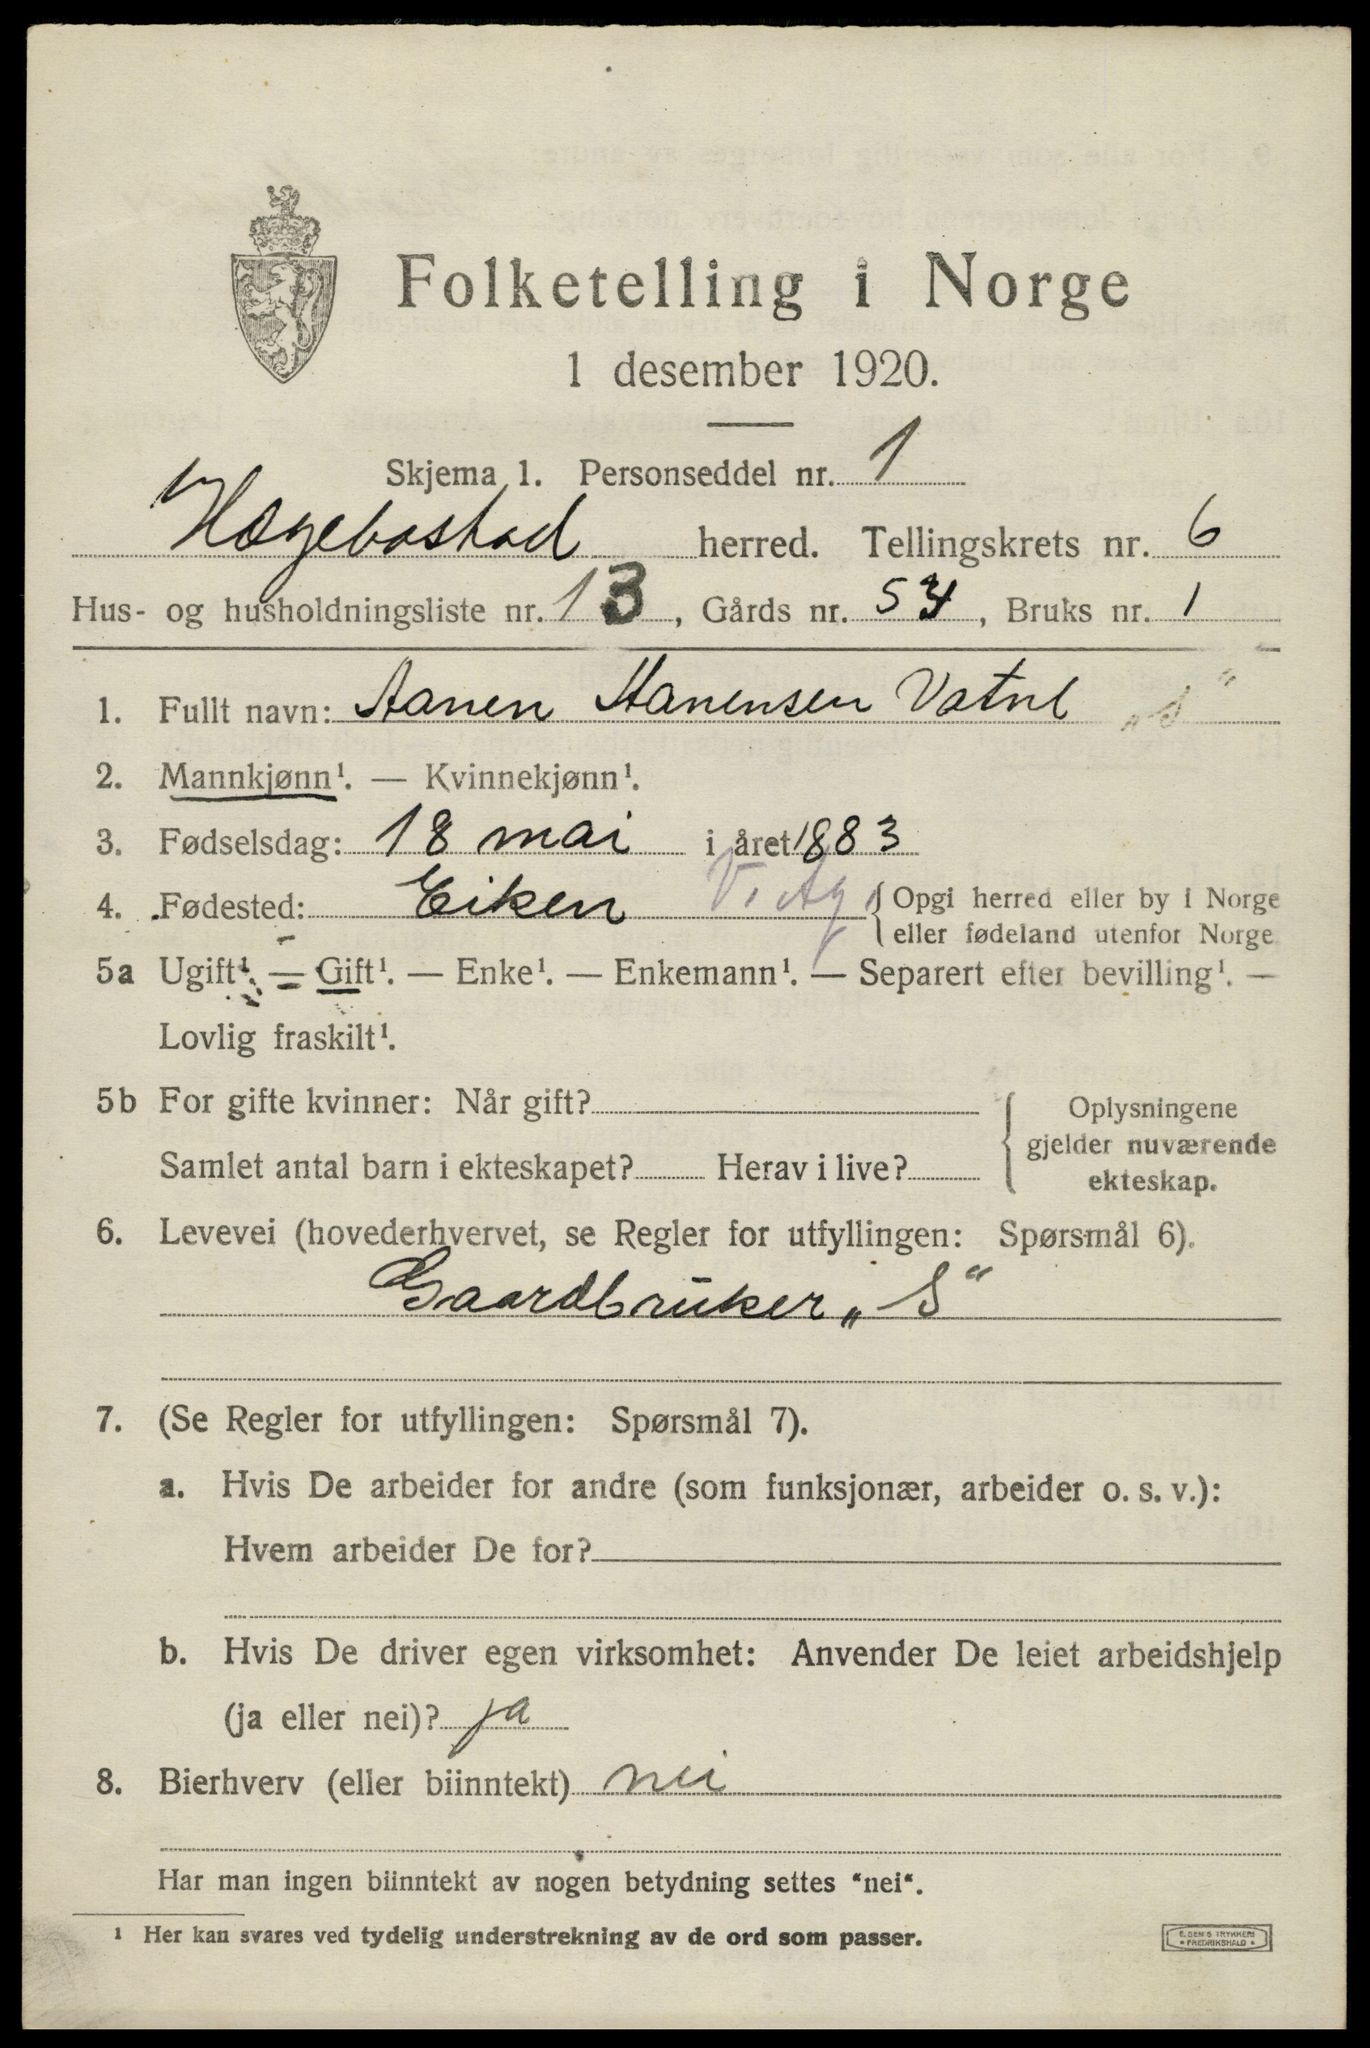 Folketelling i Norge
1 desember 1920.
Skjema 1. Personseddel nr. 1
Hægebostad herred. Tellingskrets nr. 6
Hus- og husholdningsliste nr. 13, Gårds nr. 54, Bruks nr. 1
1. Fullt navn: Aanen Aanensen Vatne „S“
2. Mannkjønn¹. — Kvinnekjønn¹.
3. Fødselsdag: 18 mai i året 1883
4. Fødested: Eiken V. Ag. { Opgi herred eller by i Norge
eller fødeland utenfor Norge
5a Ugift¹. — Gift¹. — Enke¹. — Enkemann¹. — Separert efter bevilling¹. —
Lovlig fraskilt¹.
5b For gifte kvinner: Når gift?
Samlet antal barn i ekteskapet? Herav i live?
Oplysningene
gjelder nuværende
ekteskap.
6. Levevei (hovederhvervet, se Regler for utfyllingen: Spørsmål 6).
Gaardbruker „S“
7. (Se Regler for utfyllingen: Spørsmål 7).
a. Hvis De arbeider for andre (som funksjonær, arbeider o. s. v.):
Hvem arbeider De for?
b. Hvis De driver egen virksomhet: Anvender De leiet arbeidshjelp
(ja eller nei)? ja
8. Bierhverv (eller biinntekt) nei
Har man ingen biinntekt av nogen betydning settes "nei".
¹ Her kan svares ved tydelig understrekning av de ord som passer.
E. SEM'S TRYKKERI
• FREDRIKSHALD •